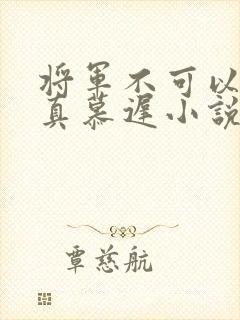 将军不可以
真慕遲小說
覃慈航